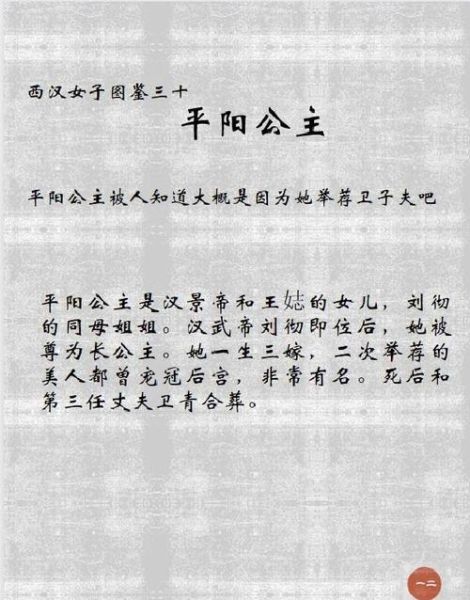 西汉女子图鉴三十
平阳公主
平阳公主被人知道大概是因为她举荐卫子夫吧
平阳公主是汉景帝和王娡的女儿，刘彻
的同母姐姐。汉武帝刘彻即位后，她被
尊为长公主。她一生三嫁，二次举荐的
美人都曾宠冠后宫，非常有名。死后和
第三任丈夫卫青合葬。
一二